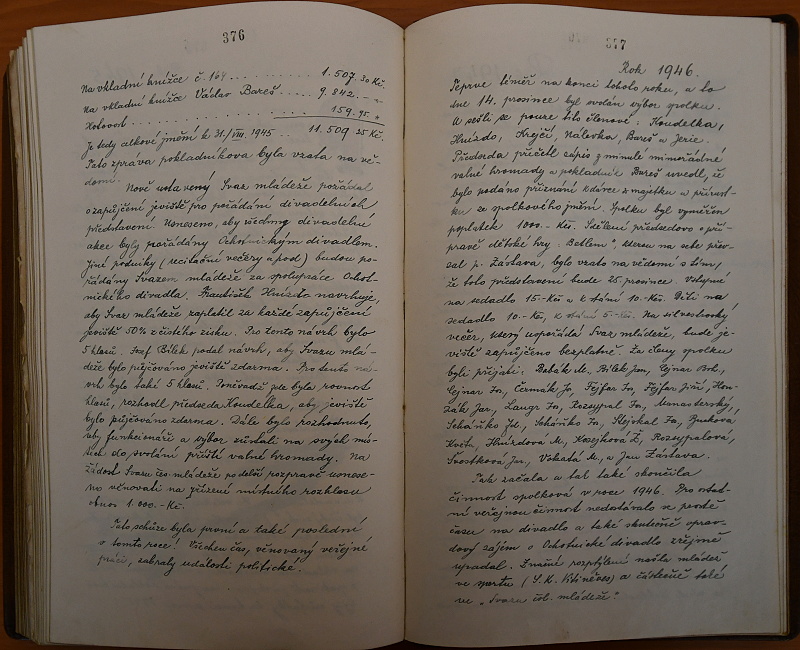 376
Na vkladní knížce č. 164 . . . . . . . . . 1.507.30 Kč.
Na vkladní knížce Václav Bareš . . . . . 9.842.– „
Hotovost . . . . . . . . . . . . . . 159.95 „
Je tedy celkové jmění k 31/VIII. 1945 . . 11.509 25 Kč.
Tato zpráva pokladníkova byla vzata na vě-
domí.
Nově ustavený Svaz mládeže požádal
o zapůjčení jeviště pro pořádání divadelních
představení. Usneseno, aby všechny divadelní
akce byly pořádány Ochotnickým divadlem.
Jiné podniky (recitační večery a pod) budou po-
řádány Svazem mládeže za spolupráce Ochot-
nického divadla. František Hnízdo navrhuje,
aby Svaz mládeže zaplatil za každé zapůjčení
jeviště 50% z čistého zisku. Pro tento návrh bylo
5 hlasů. Josef Bílek podal návrh, aby Svazu mlá-
deže bylo půjčováno jeviště zdarma. Pro tento ná-
vrh bylo také 5 hlasů. Poněvadž zde byla rovnost
hlasů, rozhodl předseda Koudelka, aby jeviště
bylo půjčováno zdarma. Dále bylo rozhodnuto,
aby funkcionáři a výbor zůstali na svých mís-
tech do svolání příští valné hromady. Na
žádost Svazu čes. mládeže po delší rozpravě usnese-
no věnovati na zřízení místního rozhlasu
obnos 1.000.- Kč.
Tato schůze byla první a také poslední
v tomto roce! Všechen čas, věnovaný veřejné
práci, zabraly události politické.
377
Rok 1946.
Teprve téměř na konci tohoto roku, a to
dne 14. prosince byl svolán výbor spolku.
A sešli se pouze tito členové: Koudelka,
Hnízdo, Krejčí, Nálevka, Bareš a Jerie.
Předseda přečetl zápis z minulé mimořádné
valné hromady a pokladník Bareš uvedl, že
bylo podáno přiznání k dávce z majetku a přírůst-
ku ze spolkového jmění. Spolku byl vyměřen
poplatek 1000.- Kčs. Sdělení předsedovo o pří-
pravě dětské hry: Betlem", kterou na sebe přev-
zal p. Zástava, bylo vzato na vědomí s tím,
že toto představení bude 25. prosince. Vstupné
na sedadlo 15.-Kčs a k stání 10.-Kčs. Děti na
sedadlo 10.-Kčs, k stání 5.-Kčs. Na silvestrovský
večer, který uspořádá Svaz mládeže, bude je-
viště zapůjčeno bezplatně. Za členy spolku
byli přijati: Babák M., Bílek Jan,
Fr, Čermák Jo, Fejfar Fr, Fejfar Jiří, Hon-
zák Jar, Langr Fr, Rozsypal Fr,
Stejskal Fr,
Květa, Hnízdová M, Rozsypalová,
Jar, M., a Jan Zástava.
Tak začala a tak také skončila
činnost spolková v roce 1946. Pro ostat-
ní veřejnou činnost nedostávalo se prostě
času na divadlo a také skutečně oprav-
dový zájem o Ochotnické divadlo zřejmě
upadal. Značné rozptýlení našla mládež
ve sportu (S.K. Vtiněves) a částečně také
ve „Svazu čsl. mládeže."